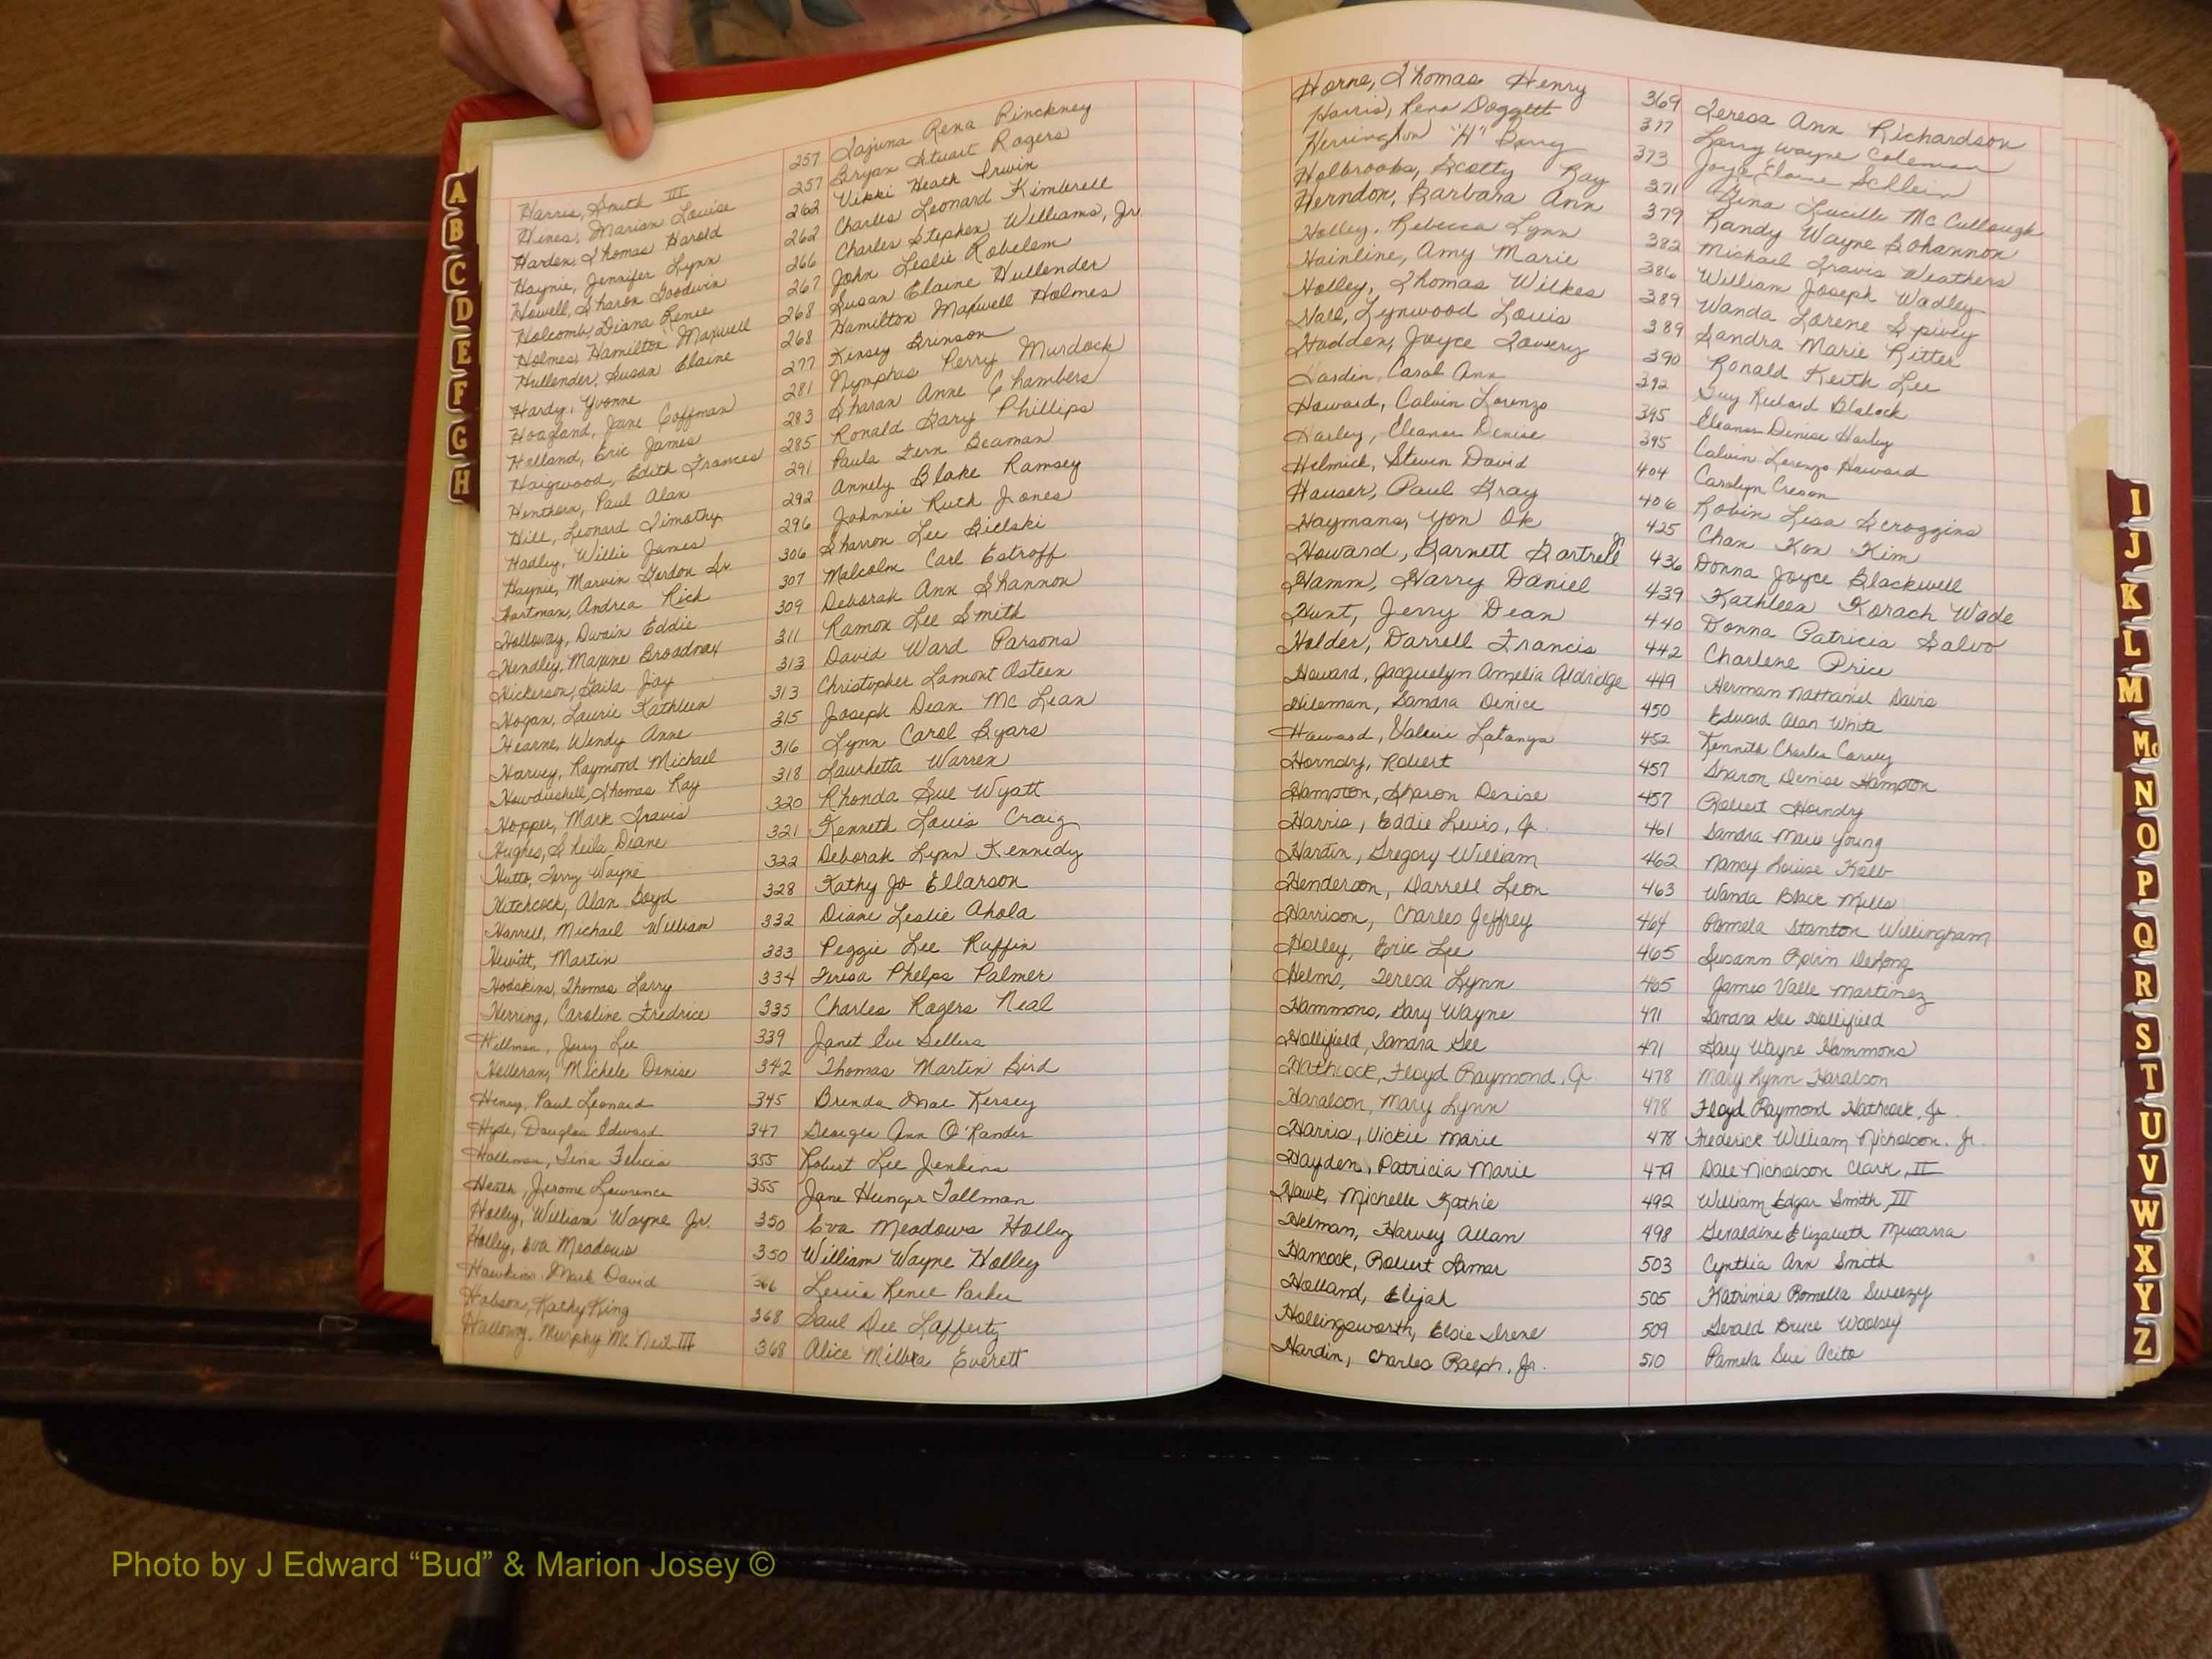 Harris, Smith III 257 Lajuna Rena Pinckney
Hines, Marian Louise 257 Bryan Stuart Rogers
Harden, Thomas Harold 262 Vikki Heath Irwin
Haynie, Jennifer Lynn 262 Charles Leonard Kimbrell
Howell, Sharon Goodwin 266 Charles Stephen Williams, Jr
Holcomb, Diana Renee 267 John Leslie Robelem
Holmes, Hamilton Maxwell 268 Susan Elaine Hullender
Hullender, Susan Elaine 268 Hamilton Maxwell Holmes
Hardy, Yvonne 277 Kinsey Brinson
Hoagland, Jane Coffman 281 Nymphas Perry Murdock
Holland, Eric James 283 Sharan Anne Chambers
Haigwood, Edith Frances 285 Ronald Gary Phillips
Henthorn, Paul Alan 291 Paula Fern Beaman
Hill, Leonard Timothy 292 Annely Blake Ramsey
Hadley, Willie James 296 Johnnie Ruth Jones
Haynie, Marvin Gordon Sr. 306 Sharron Lee Bielski
Hartman, Andrea Rich 307 Malcolm Carl Estroff
Holloway, Dwain Eddie 309 Deborah Ann Shannon
Hendley, Maxine Broadnax 311 Ramon Lee Smith
Hickerson, Gaila Jay 313 David Ward Parsons
Hogan, Laurie Kathleen 313 Christopher Lamont Osteen
Hearne, Wendy Anne 315 Joseph Dean McLean
Harvey, Raymond Michael 316 Lynn Carol Byars
Howdieshell, Thomas Ray 318 Laurhetta Warren
Hopper, Mark Travis 320 Rhonda Sue Wyatt
Hughes, Sheila Diane 321 Kenneth Louis Craig
Hutto, Terry Wayne 322 Deborah Lynn Kennedy
Hitchcock, Alan Boyd 328 Kathy Jo Ellarson
Harrell, Michael William 332 Diane Leslie Ahola
Hewitt, Martin 333 Peggie Lee Ruffin
Hodskins, Thomas Larry 334 Teresa Phelps Palmer
Herring, Caroline Fredrice 335 Charles Rogers Neal
Hillman, Jerry Lee 339 Janet Eve Sellers
Helleran, Michele Denise 342 Thomas Martin Bird
Henry, Paul Leonard 345 Brenda Mae Kersey
Hyde, Douglas Edward 347 Georgia Ann O'Rander
Holliman, Tina Felicia 355 Robert Lee Jenkins
Heath, Jerome Lawrence 355 Jane Hunger Tallman
Holley, William Wayne Jr. 350 Eva Meadows Holley
Holley, Eva Meadows 350 William Wayne Holley
Hawkins, Mark David 366 Leisia Renee Parker
Hobson, Kathy King 368 Saul Dee Lafferty
Holloway, Murphy McNeil III 368 Alice Milbra Everett
Horne, Thomas Henry 369 Teresa Ann Richardson
Harris, Rena Doggett 377 Larry Wayne Coleman
Herrington "H" Barry 373 Joyce Elaine Schlein
Holbrooks, Scotty Ray 371 Gina Lucille McCullough
Herndon, Barbara Ann 379 Randy Wayne Bohannon
Holley, Rebecca Lynn 382 Michael Travis Weathers
Hainline, Amy Marie 386 William Joseph Wadley
Holley, Thomas Wilkes 389 Wanda Lorene Spivey
Hall, Lynwood Louis 389 Sandra Marie Ritter
Hadden, Joyce Lowery 390 Ronald Keith Lee
Hardin, Carol Ann 392 Guy Richard Blalock
Howard, Calvin Lorenzo 395 Eleanor Denise Harley
Harley, Eleanor Denise 395 Calvin Lorenzo Howard
Helmick, Steven David 404 Carolyn Creson
Hauser, Paul Gray 406 Robin Lisa Scroggins
Haymans, Yon Ok 425 Chan Kon Kim
Howard, Garnett Gartrell Jr 436 Donna Joyce Blackwell
Hamm, Harry Daniel 439 Kathleen Korach Wade
Hunt, Jerry Dean 440 Donna Patricia Salvo
Holder, Darrell Francis 442 Charlene Price
Howard, Jacquelyn Amelia Aldridge 449 Herman Nathaniel Davis
Hileman, Sandra Denice 450 Edward Alan White
Howard, Valerie Latanya 452 Kenneth Charles Carvey
Horndy, Robert 457 Sharon Denise Hampton
Hampton, Sharon Denise 457 Robert Horndy
Harris, Eddie Lewis, Jr. 461 Sandra Marie Young
Hartin, Gregory William 462 Nancy Louise Kolb
Henderson, Darrell Leon 463 Wanda Black Mills
Harrison, Charles Jeffrey 464 Pamela Stanton Willingham
Holley, Eric Lee 465 Susann Robin DeLong
Helms, Teresa Lynn 465 James Valle Martinez
Hammons, Gary Wayne 471 Sandra Gee Hollifield
Hollifield, Sandra Gee 471 Gary Wayne Hammons
Hathcock, Floyd Raymond, Jr. 478 Mary Lynn Haralson
Haralson, Mary Lynn 478 Floyd Raymond Hathcock, Jr.
Harris, Vickie Marie 478 Frederick William Nicholson, Jr.
Hayden, Patricia Marie 479 Dale Nicholson Clark, II
Hawk, Michelle Kathie 492 William Edgar Smith, III
Helman, Harvey Allan 498 Geraldine Elizabeth Mucarra
Hancock, Robert Lamar 503 Cynthia Ann Smith
Holland, Elijah 505 Katrinia Romella Sweezy
Hollingsworth, Elsie Irene 509 Gerald Bruce Woolsey
Hardin, Charles Ralph, Jr. 510 Pamela Sue Acito
A
B
C
D
E
F
G
H
I
J
K
L
M
Mc
N
O
P
Q
R
S
T
U
V
W
X
Y
Z
Photo by J Edward “Bud” & Marion Josey ©